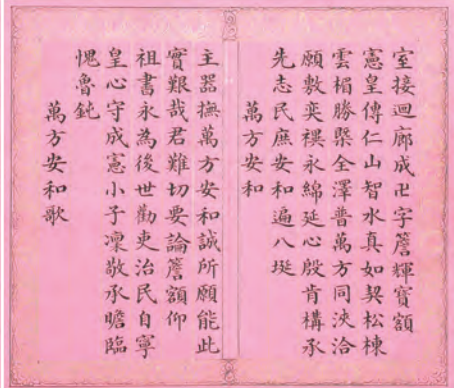 室接迴廊成卍字簷輝寶額
憲皇傳仁山智水真如契松棟
雲楣勝槩全澤普萬方同浹洽
願敷奕禩永綿延心殷肯構承
先志民庶安和遍八埏
萬方安和
主器撫萬方安和誠所願能此
實艱哉君難切要論簷額仰
祖書永為後世勸吏治民自寧
皇心守成憲小子凜敬承瞻臨
愧魯鈍
萬方安和歌